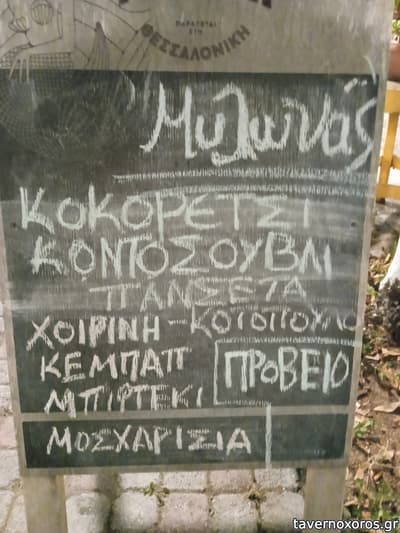 ΠΑΡΑΓΕΤΑΙ
ΣΤΗ
ΘΕΣΣΑΛΟΝΙΚΗ
Μυλωνάς
ΚΟΚΟΡΕΤΣΙ
ΚΟΝΤΟΣΟΥΒΛΙ
ΠΑΝΣΕΤΑ
ΧΟΙΡΙΝΗ - ΚΟΤΟΠΟΥΛΟ
ΚΕΜΠΑΠ
ΠΡΟΒΕΙΟ
ΜΠΙΡΤΕΚΙ
ΜΟΣΧΑΡΙΣΙΑ
tavernoxoros.gr